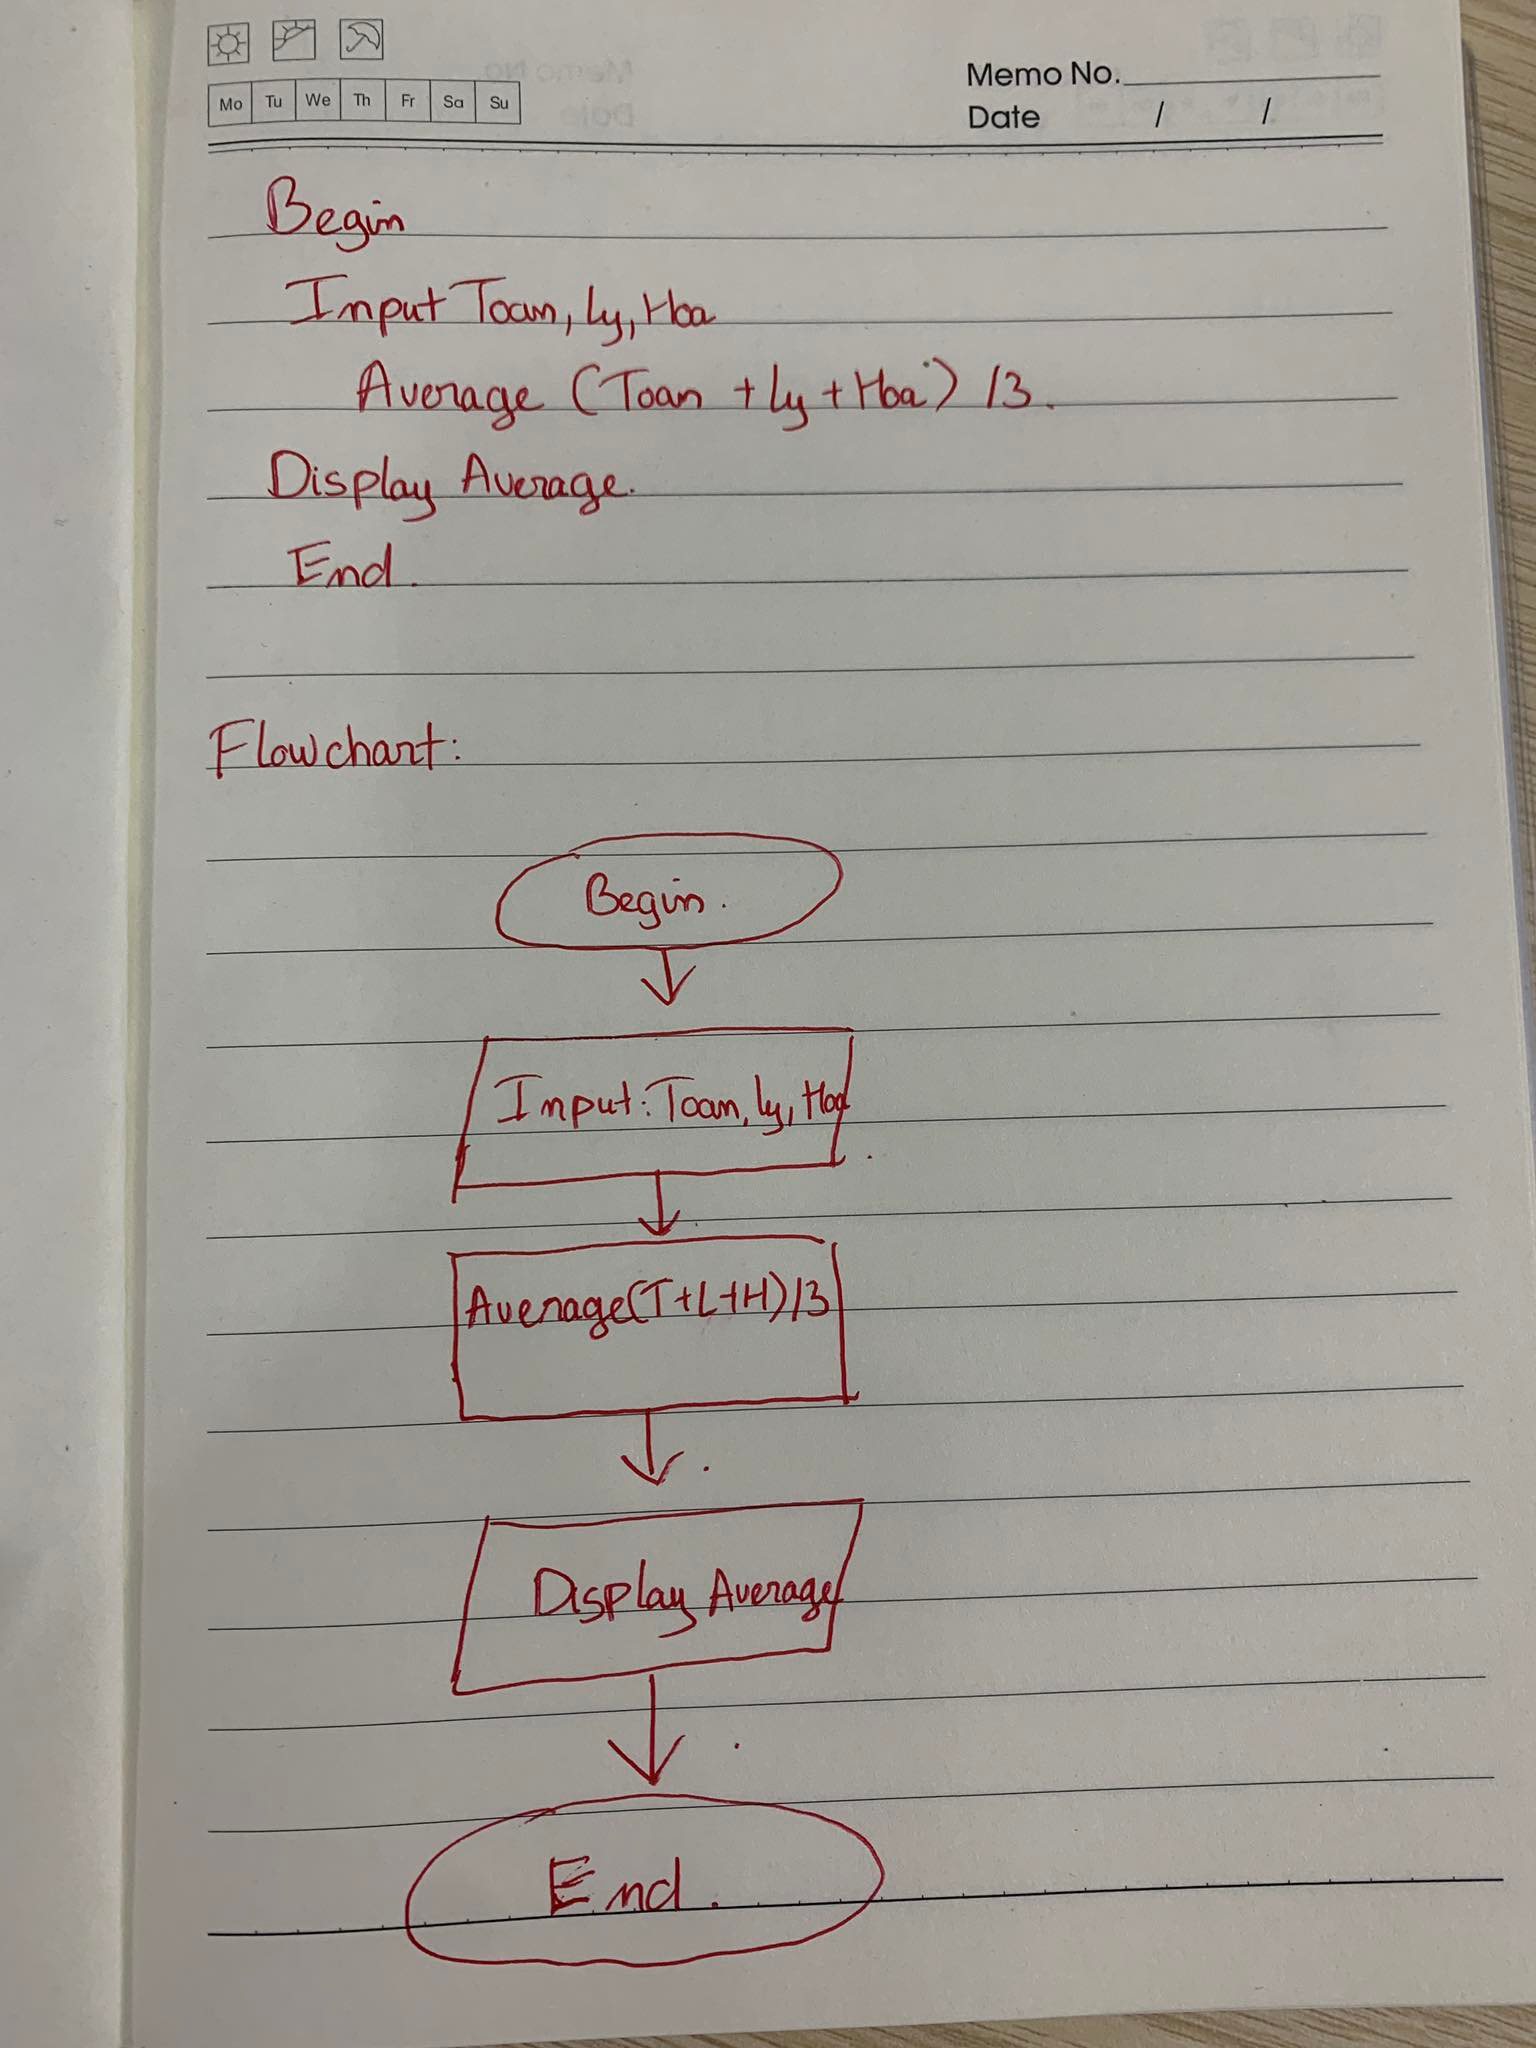 Memo No.
Mo Tu We Th Fr Sa Su
Date / /
Begin
Input Toan, Ly, Hoa
Average (Toan + Ly + Hoa) /3.
Display Average.
End.
Flowchart:
Begin.
Input: Toan, Ly, Hoa
Average(T+L+H)/3
Display Average
End.